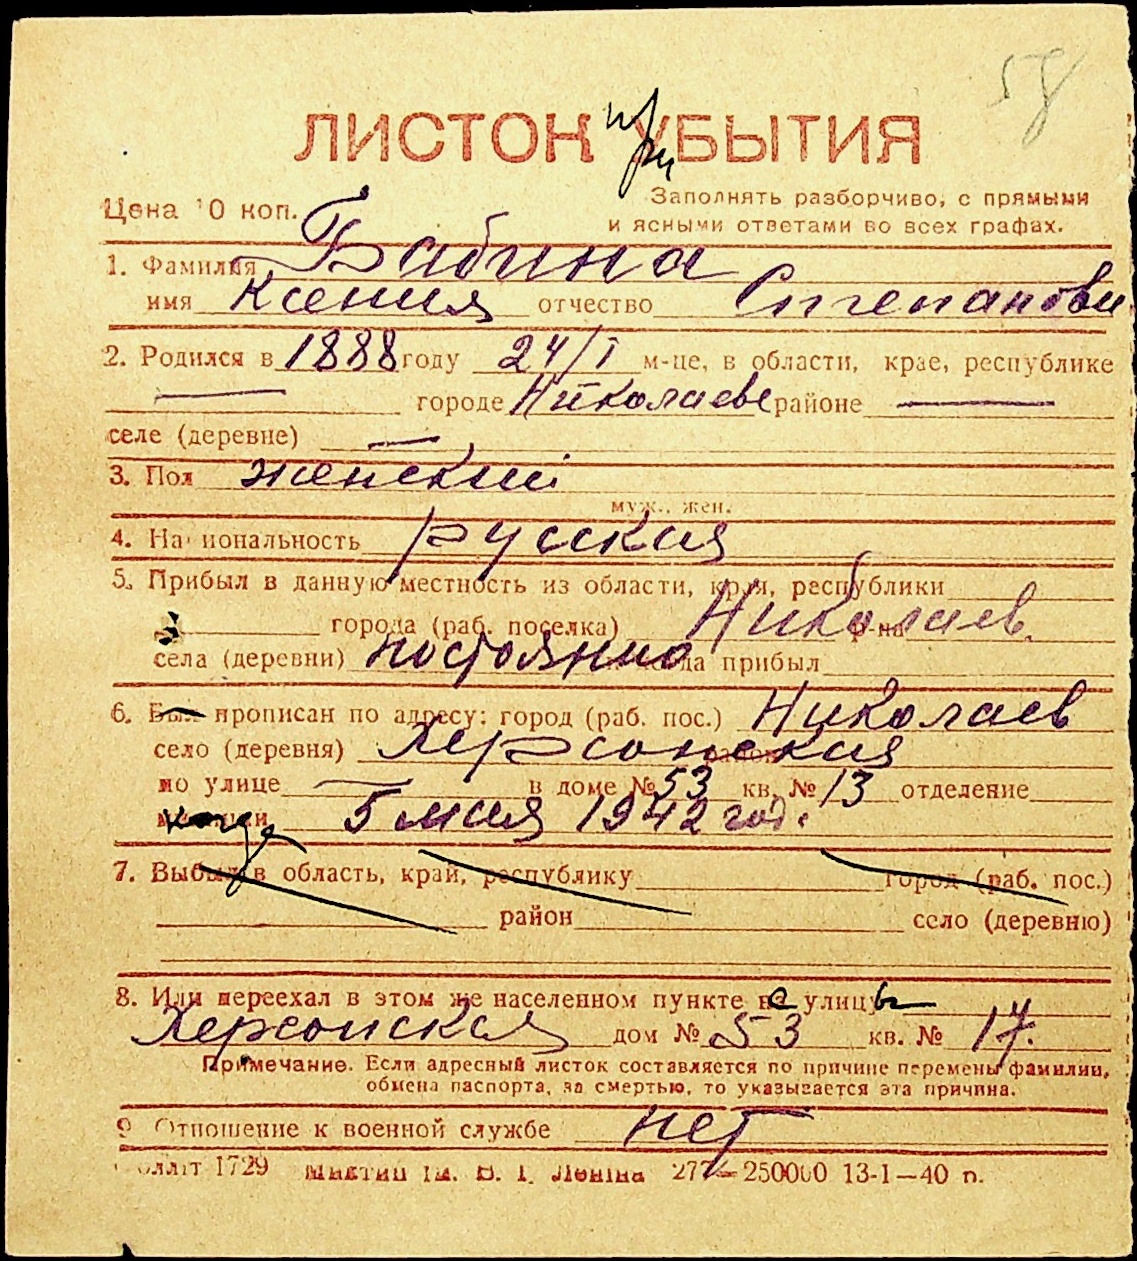 58
ЛИСТОК УБЫТИЯ
при
Цена 10 коп.
Заполнять разборчиво, с прямыми
и ясными ответами во всех графах.
1. Фамилия Бабина
имя Ксения отчество Степанови
2. Родился в 1888 году 24/I м-це, в области, крае, республике
— городе Николаеве районе —
селе (деревне) —
3. Пол женский
муж., жен.
4. На иональность русская
5. Прибыл в данную местность из области, края, республики
города (раб. поселка) Николаев р-на
села (деревни) постоянно да прибыл
6. Был прописан по адресу: город (раб. пос.) Николаев
село (деревня) Херсонская район
по улице — в доме № 53 кв. № 13 отделение
когда 5 мая 1942 год.
7. Выбыл в область, край, республику город (раб. пос.)
район село (деревню)
8. Или переехал в этом же населенном пункте с улицы
Херсонская дом № 53 кв. № 17.
Примечание. Если адресный листок составляется по причине перемены фамилии,
обмена паспорта, за смертью, то указывается эта причина.
9 Отношение к военной службе нет
обллiт 1729 iм. В. І. Ленiна 277—250000 13-1—40 п.